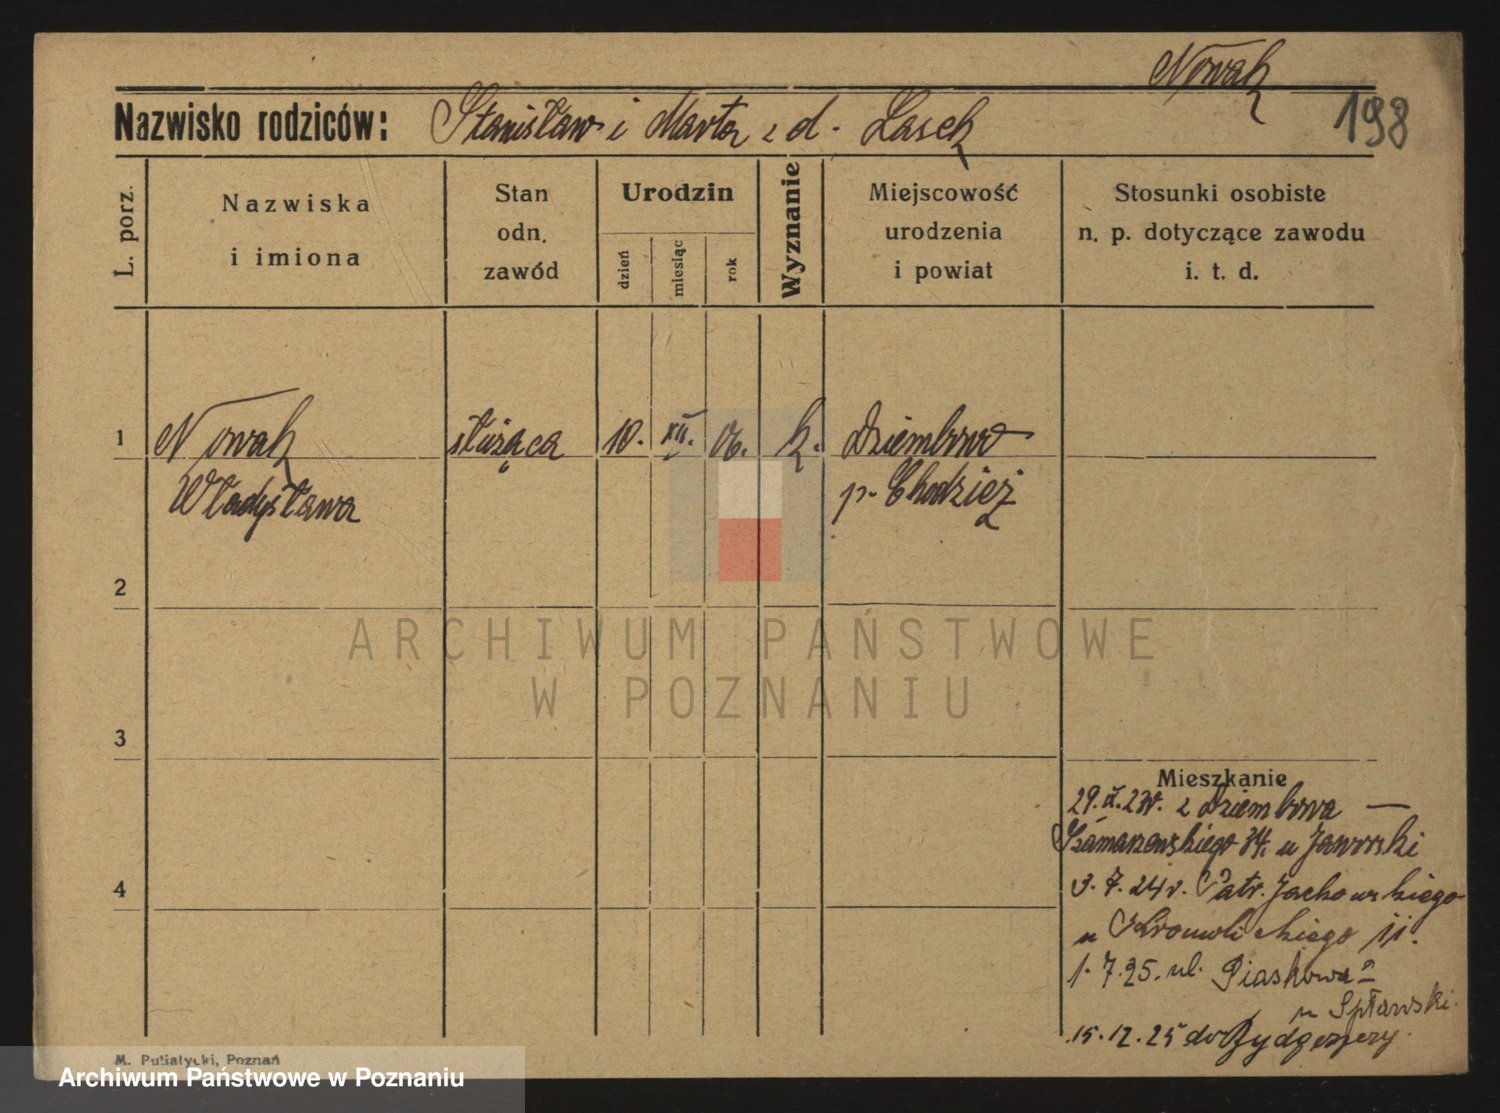 Nowak
Nazwisko rodziców: Stanisław i Marta z d. Lasek
198
L. porz.
Nazwiska
i imiona
Stan
odn.
zawód
Urodzin
dzień
miesiąc
rok
Wyznanie
Miejscowość
urodzenia
i powiat
Stosunki osobiste
n. p. dotyczące zawodu
i. t. d.
1 Nowak służąca 10. XII. 06. k. Dziembowo
Władysława p. Chodzież
2
ARCHIWUM PAŃSTWOWE
W POZNANIU
3
Mieszkanie
23r. z Dziembowa —
34. u Jaworski
4
3. 7. 24r. Patr. Jackowskiego
u 11.
1. 7. 25. ul. Piaskowa 2
u Spławski.
15.12.25 do Bydgoszczy.
M. Putiatycki, Poznań
Archiwum Państwowe w Poznaniu